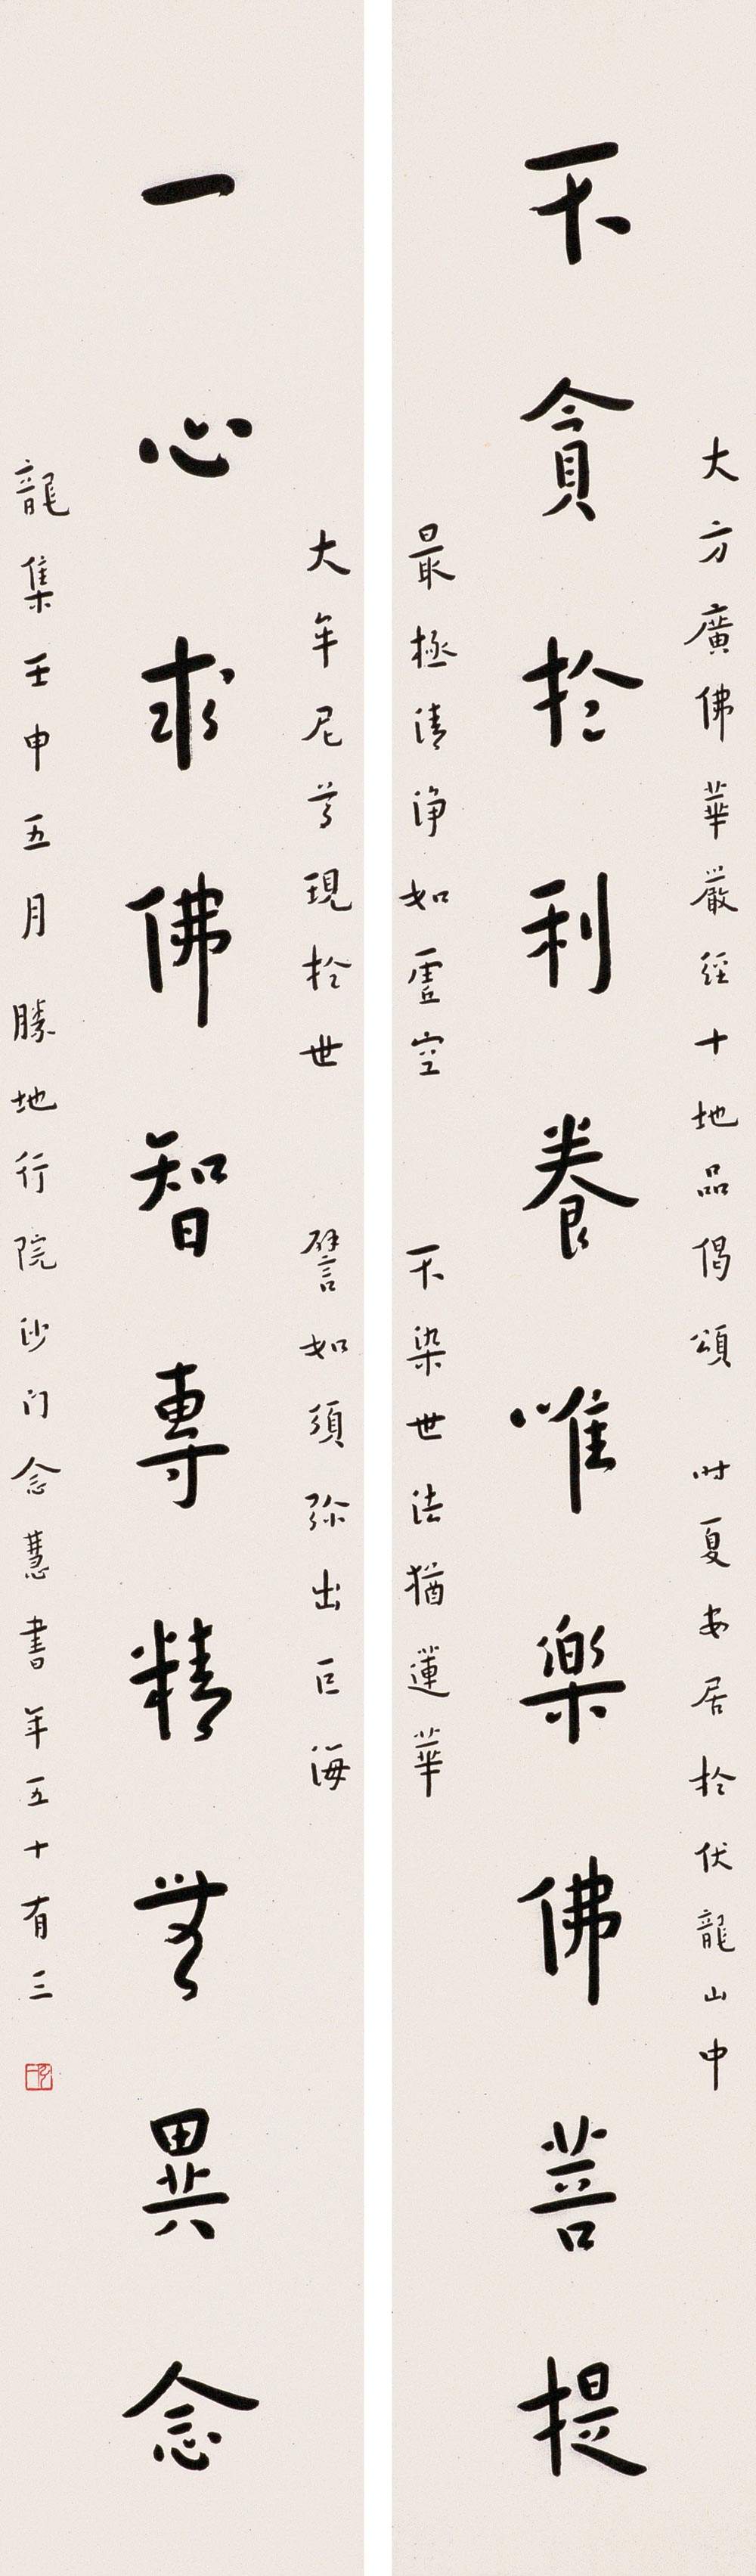 大方廣佛華嚴經十地品偈頌 时夏安居扵伏龍山中
不貪扵利養唯樂佛菩提
最極清淨如虛空 不染世法猶蓮華
大年尼尊現扵世 譬如須弥出巨海
一心求佛智專精無異念
龍集壬申五月勝地行院沙门念慧書年五十有三